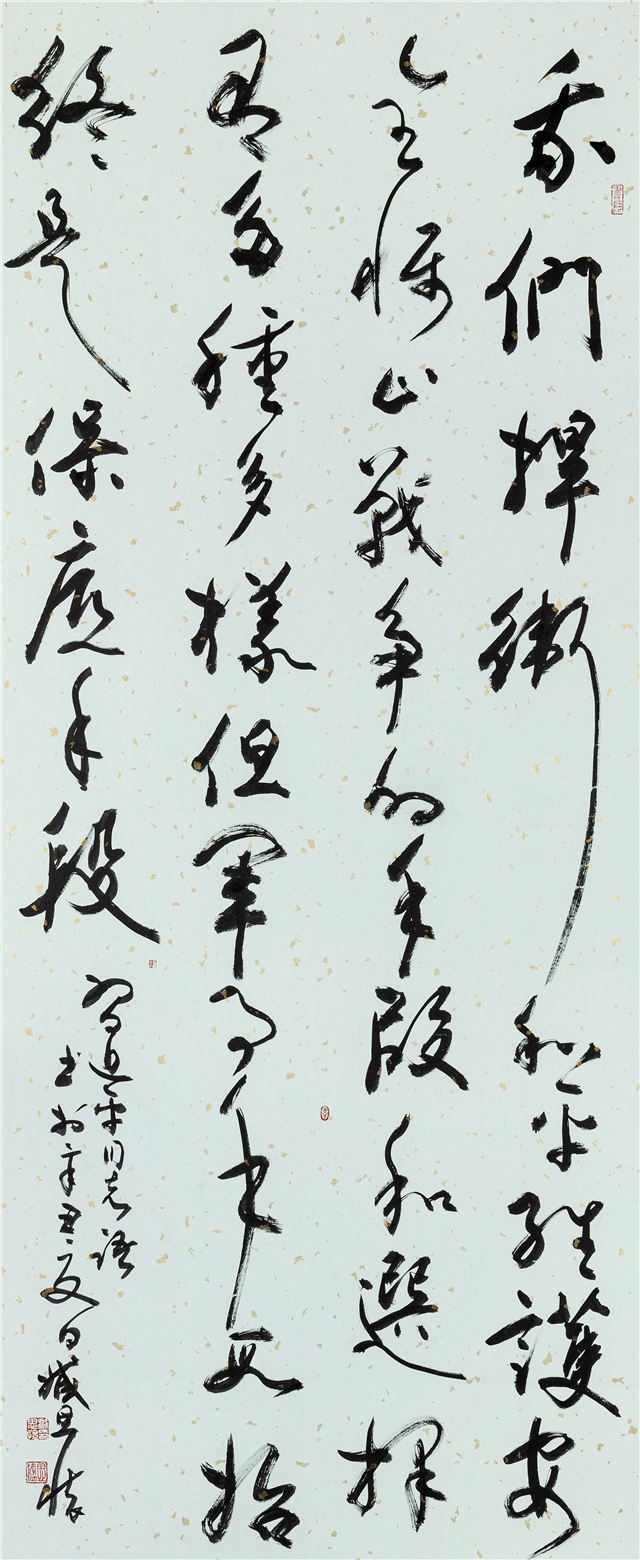 我們捍衛和平維護安
全懾止戰爭的手段和選擇
有多種多樣但軍事手段始
終是保底手段
習近平同志語
書於辛丑夏日臧